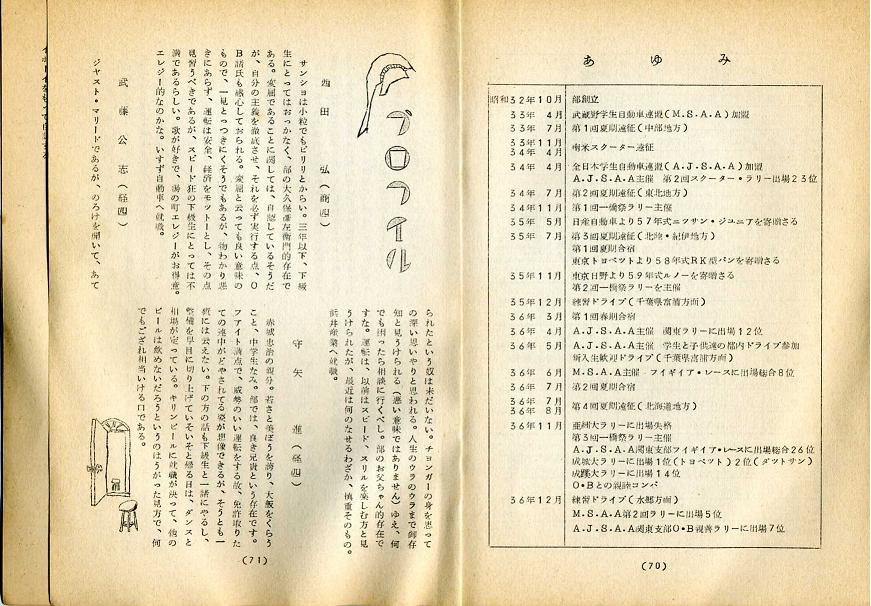 あゆみ
昭和32年10月 部創立
33年 4月 武蔵野学生自動車連盟(M.S.A.A)加盟
33年 7月 第1回夏期遠征(中部地方)
33年11月
34年 4月 南米スクーター遠征
34年 4月 全日本学生自動車連盟(A.J.S.A.A)加盟
A.J.S.A.A主催 第2回スクーター・ラリー出場23位
34年 7月 第2回夏期遠征(東北地方)
34年11月 第1回一橋祭ラリー主催
35年 5月 日産自動車より57年式ニツサン・ジユニアを寄贈さる
35年 7月 第3回夏期遠征(北陸・紀伊地方)
第1回夏期合宿
東京トヨペツトより58年式RK型バンを寄贈さる
35年11月 東京日野より59年式ルノーを寄贈さる
第2回一橋祭ラリーを主催
35年12月 練習ドライブ(千葉県富浦方面)
36年 3月 第1回春期合宿
36年 4月 A.J.S.A.A主催 関東ラリーに出場12位
36年 5月 A.J.S.A.A主催 学生と子供達の都内ドライブ参加
新入生歓迎ドライブ(千葉県富浦方面)
36年 6月 M.S.A.A主催・フイギイア・レースに出場総合8位
36年 7月 第2回夏期合宿
36年 7月
36年 8月 第4回夏期遠征(北海道地方)
36年11月 亜細大ラリーに出場失格
第3回一橋祭ラリー主催
A.J.S.A.A関東支部フイギイア・レースに出場総合26位
成城大ラリーに出場1位(トヨペツト)2位(ダツトサン)
成蹊大ラリーに出場14位
O・Bとの親睦コンパ
36年12月 練習ドライブ(水郷方面)
M.S.A.A第2回ラリーに出場5位
A.J.S.A.A関東支部O・B親善ラリーに出場7位
(70)
プロフイル
西田 弘(商四)
サンショは小粒でもピリリとからい。三年以下、下級
生にとってはおっかなく、部の大久保彦左衛門的存在で
ある。変屈であることに関しては、自認しているそうだ
が、自分の主義を徹底させ、それを必ず実行する点、O
B諸氏も感心しておられる。変屈と云っても良い意味の
もので、一見とっつきにくそうでもあるが、物わかり悪
きにあらず、運転は安全、経済をモットーとし、その点
見習うべきであるが、スピード狂の下級生にとっては不
満であるらしい。歌が好きで、湯の町エレジーがお得意。
エレジー的なのかな。いすず自動車へ就職。
武藤公志(経四)
ジャスト・マリードであるが、のろけを聞いて、あて
られたという奴は未だいない。チョンガーの身を思って
の深い思いやりと思われる。人生のウラのウラまで御存
知と見うけられる(悪い意味ではありません)ゆえ、何
でも困ったら相談に行くべし。部のお父ちゃん的存在で
すな。運転は、以前はスピード、スリルを楽しむ方と見
うけられたが、最近は何のなせるわざか、慎重そのもの。
浜井産業へ就職。
守矢 進(経四)
赤城忠治の親分。若さと美ぼうを誇り、大飯をくらう
こと、中学生なみ。部では、良き兄貴という存在です。
ファイト満点で、威勢のいい運転をする故、免許取りた
ての連中がどやされてる姿が想像できるが、そうとも一
概には云えない。下の方の話も下級生と一緒にやるし、
整備を早目に切り上げていそいそと帰る日は、ダンスと
相場が定っている。キリンビールに就職が決って、他の
ビールは飲めないだろうというのはうがった見方で、何
でもござれ相当いける口である。
(71)